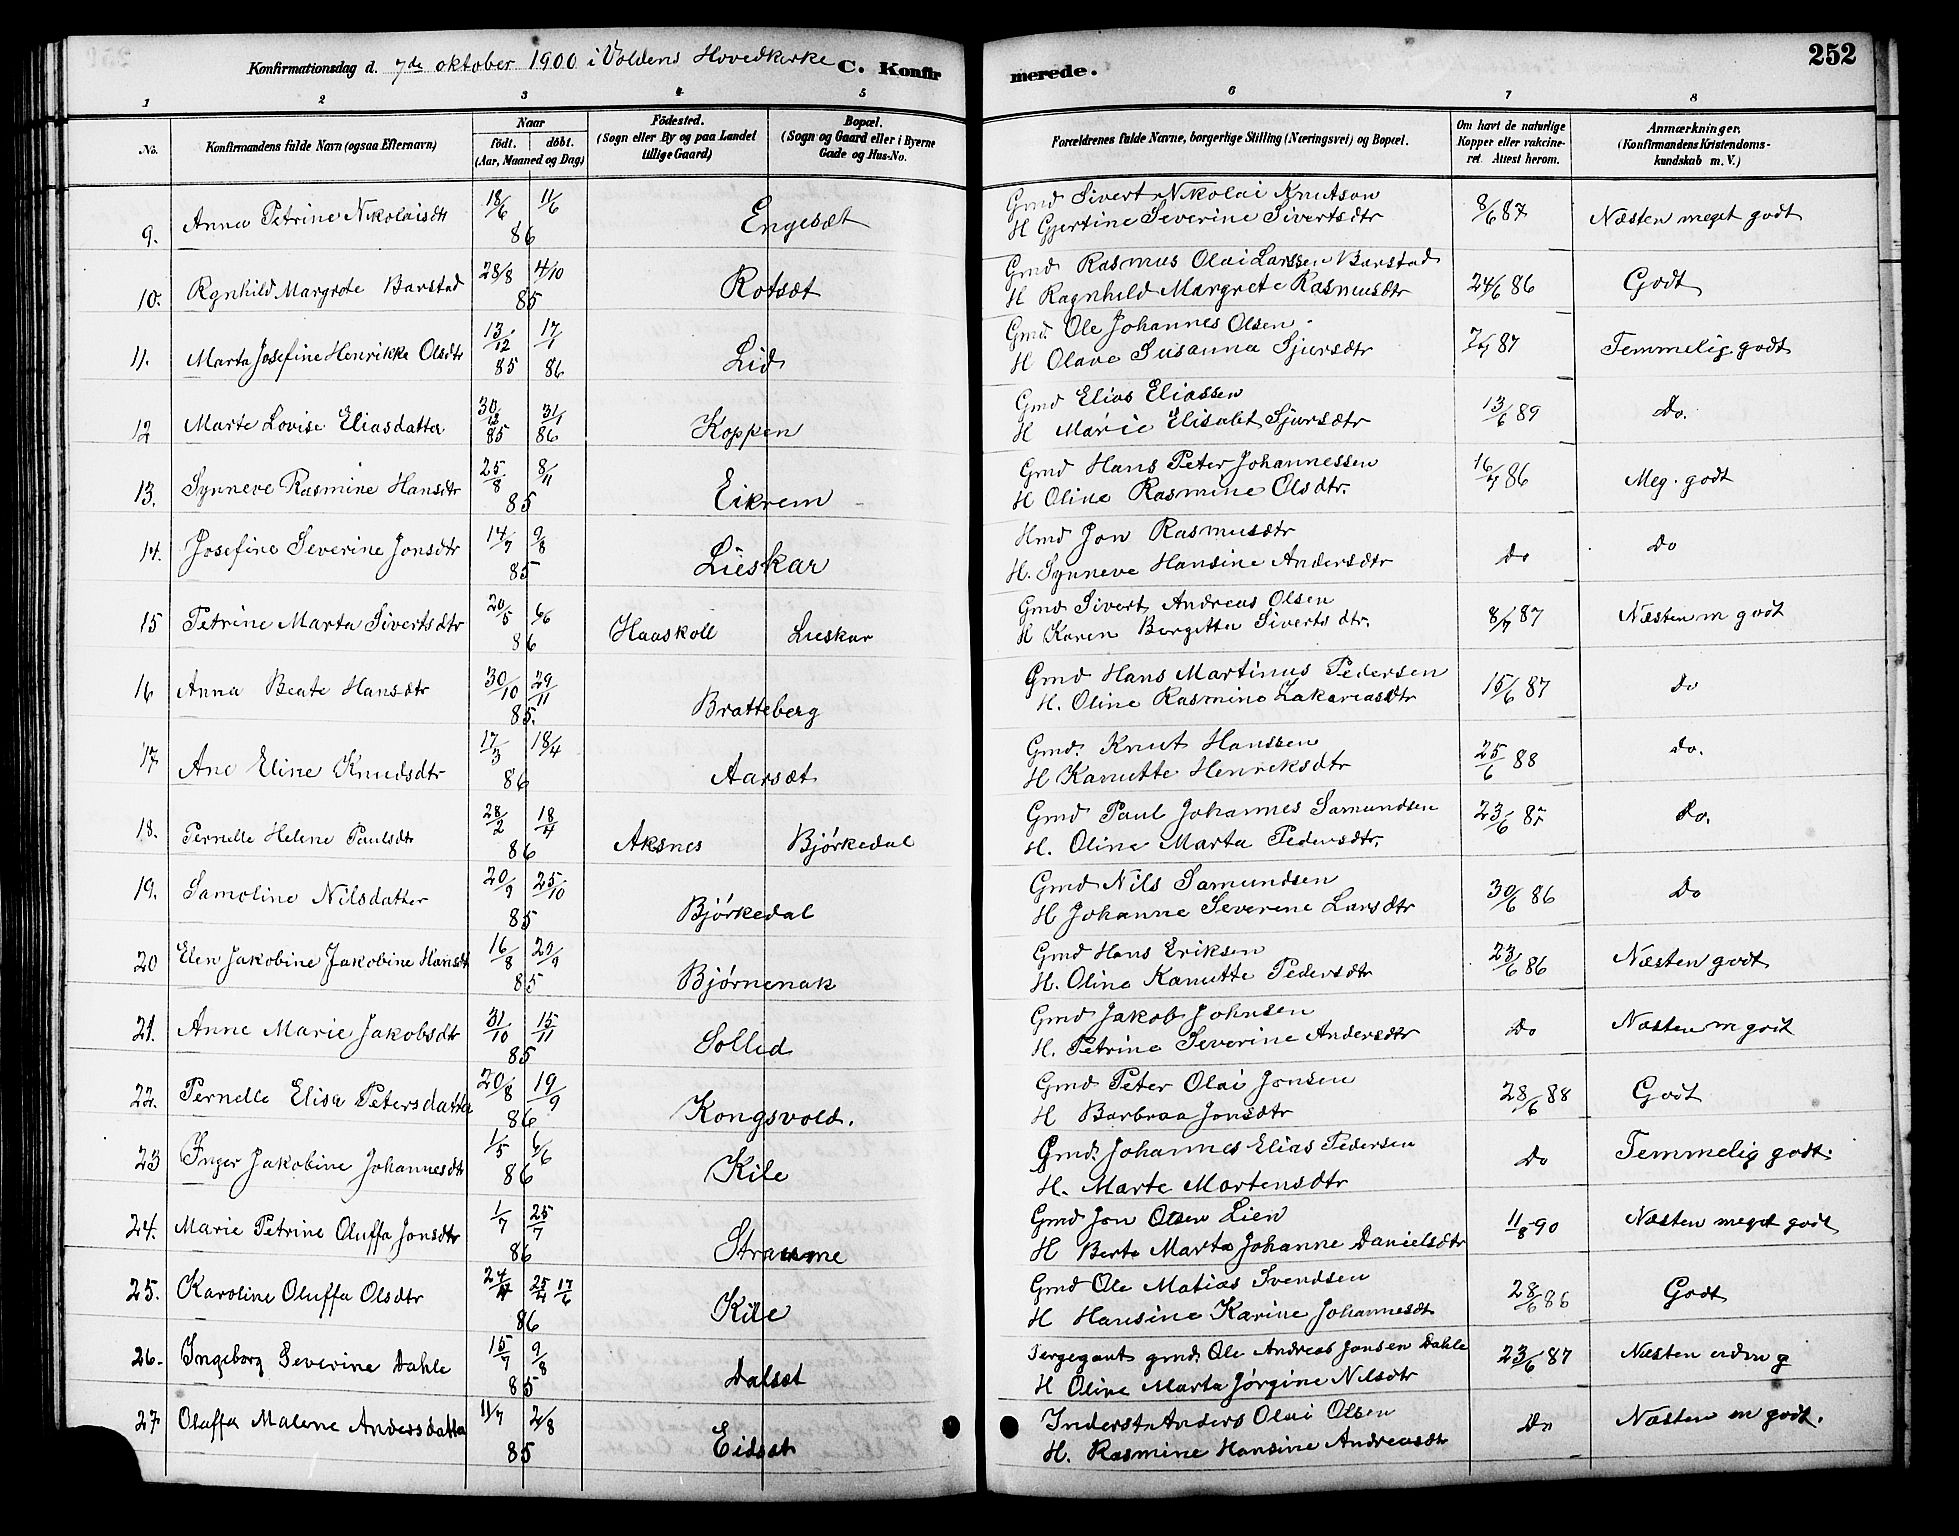 252
Konfirmationsdag d. 7de oktober 1900 i Voldens Hovedkirke C. Konfirmerede.
1 2 3 4 5 6 7 8
No. Konfirmandens fulde Navn (ogsaa Efternavn) Naar født. døbt. (Aar, Maaned og Dag) Födested. (Sogn eller By og paa Landet tillige Gaard) Bopæl. (Sogn og Gaard eller i Byerne Gade og Hus-No. Forældrenes fulde Navne, borgerlige Stilling (Næringsvei) og Bopæl. Om havt de naturlige Kopper eller vakcineret. Attest herom. Anmærkninger. (Konfirmandens Kristendomskundskab m. V.)
9. Anna Petrine Nikolaisdtr 18/6 11/6 86 Engesæt Gmd Sivert Nikolai Knutson 8/6 87 Næsten meget godt
H Gjertine Severine Sivertsdtr
10. Rgnhild Margrete Barstad 28/8 4/10 85 Rotsæt Gmd Rasmus Olai Larssen Barstad 24/6 86 Godt
H Ragnhild Margrete Rasmusdtr
11. Marta Josefine Henrikke Olsdtr 13/12 85 17/1 86 Lid Gmd. Ole Johannes Olsen 87 Temmelig godt
H Olave Susanna Sjursdtr
12 Marte Lovise Eliasdatter 30/12 85 31/1 86 Koppen Gmd Elias Eliassen 13/6 89 Do.
H Marie Elisabet Sjursdtr
13. Synneve Rasmine Hansdtr 25/8 8/11 85 Eikrem Gmd Hans Peter Johannessen 16/7 86 Meg. godt
H Oline Rasmine Olsdtr.
14. Josefine Severine Jonsdtr 14/7 9/8 85 Lieskar Hmd Jon Rasmusdtr Do Do
H. Synneve Hansine Andersdtr
15 Petrine Marta Sivertsdtr 20/5 6/6 86 Haaskoll Lieskar Gmd Sivert Andreas Olsen 8/7 87 Næsten m godt
H Karen Bergitta Sivertsdtr.
16 Anna Beate Hansdtr 30/10 29/11 85. Bratteberg Gmd Hans Martinus Pedersen 15/6 87 Do
H. Oline Rasmine Zakariasdtr
17 Ane Eline Knudsdtr 17/3 18/4 86 Aarsæt Gmd. Knut Hanssen 25/6 88 Do.
H Kanutte Henriksdtr
18. Pernelle Helene Paulsdtr 28/2 18/4 86 Aksnes Bjørkedal Gmd Paul Johannes Samundsen 23/6 87 Do.
H. Oline Marta Pedersdtr.
19. Samoline Nilsdatter 20/9 25/10 85 Bjørkedal Gmd Nils Samundsen 30/6 86 Do
H Johanne Severene Larsdtr
20 Elen Jakobine Jakobine Hansdt 16/8 27/9 85 Bjørnenak Gmd Hans Eriksen 23/6 86 Næsten godt
H. Oline Kanutte Pedersdtr
21. Anne Marie Jakobsdtr 31/10 15/11 85 Sollid Gmd Jakob Johnsen Do Næsten m godt
H. Petrine Severine Andersdtr
22. Pernelle Elisa Petersdatter 20/8 19/9 86 Kongsvold. Gmd Peter Olai Jonsen 28/6 88 Godt
H Barbraa Jonsdtr
23 Inger Jakobine Johannesdtr 1/5 6/6 86 Kile Gmd. Johannes Elias Pedersen Do Temmelig godt.
H. Marte Martensdtr
24. Marie Petrine Oluffa Jonsdtr 1/7 25/7 86 Straume Gmd Jon Olsen Lien 11/8 90 Næsten meget godt
H Berte Marta Johanne Danielsdtr
25. Karoline Oluffa Olsdtr 24/4 25/4 17/6 86 Kile Gmd Ole Matias Svendsen 28/6 86 Godt
H Hansine Karine Johannesdt
26. Ingeborg Severine Dahle 15/7 9/8 85 Dalset Sergegant gmd. Ole Andreas Jonsen Dahle 23/6 87 Næsten
H Oline Marta Jørgine Nilsdtr
27 Oluffa Malene Andersdatter 11/7 2/8 85 Eidset Inderst Anders Olai Olsen Do Næsten m godt.
H. Rasmine Hansine Andreasdtr